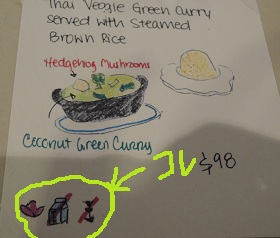 Thai Veggie Green Curry
served with Steamed
Brown Rice
Hedgehog Mushrooms
Coconut Green Curry
コレ
$98